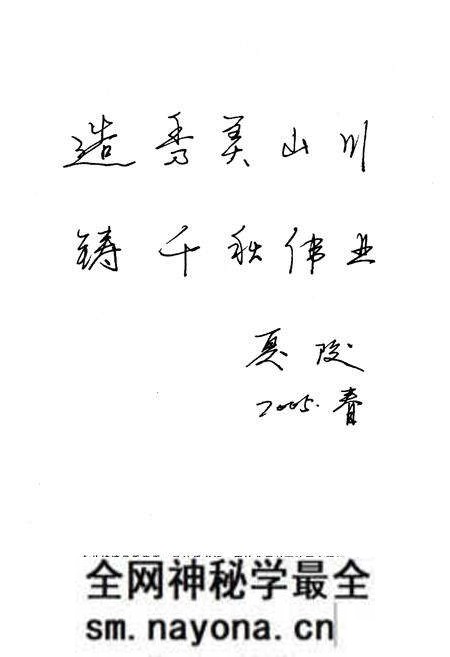 造秀美山川
铸千秋伟业
夏
2005.春
全网神秘学最全
sm.nayona.cn